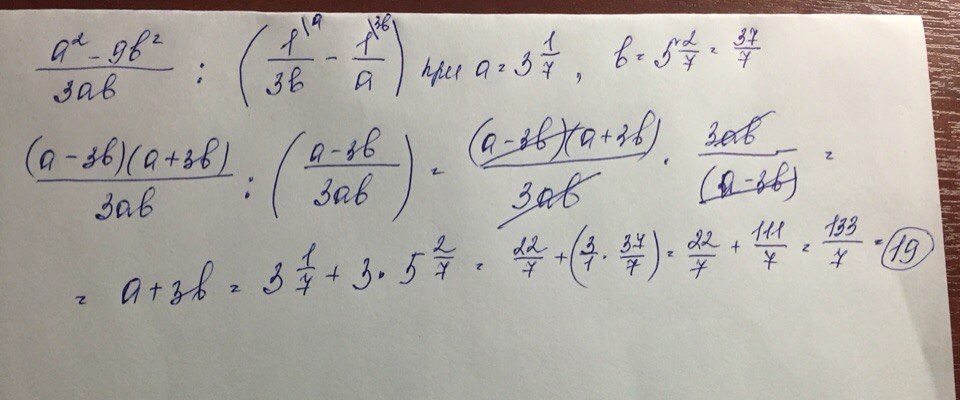 a² - 9b² / 3ab : (1\a / 3b - 1\3b / a) при a = 3 1/7, b = 5 2/7 = 37/7
(a - 3b)(a + 3b) / 3ab : (a - 3b / 3ab) = (a - 3b)(a + 3b) / 3ab · 3ab / (a - 3b) =
= a + 3b = 3 1/7 + 3 · 5 2/7 = 22/7 + (3/1 · 37/7) = 22/7 + 111/7 = 133/7 = 19